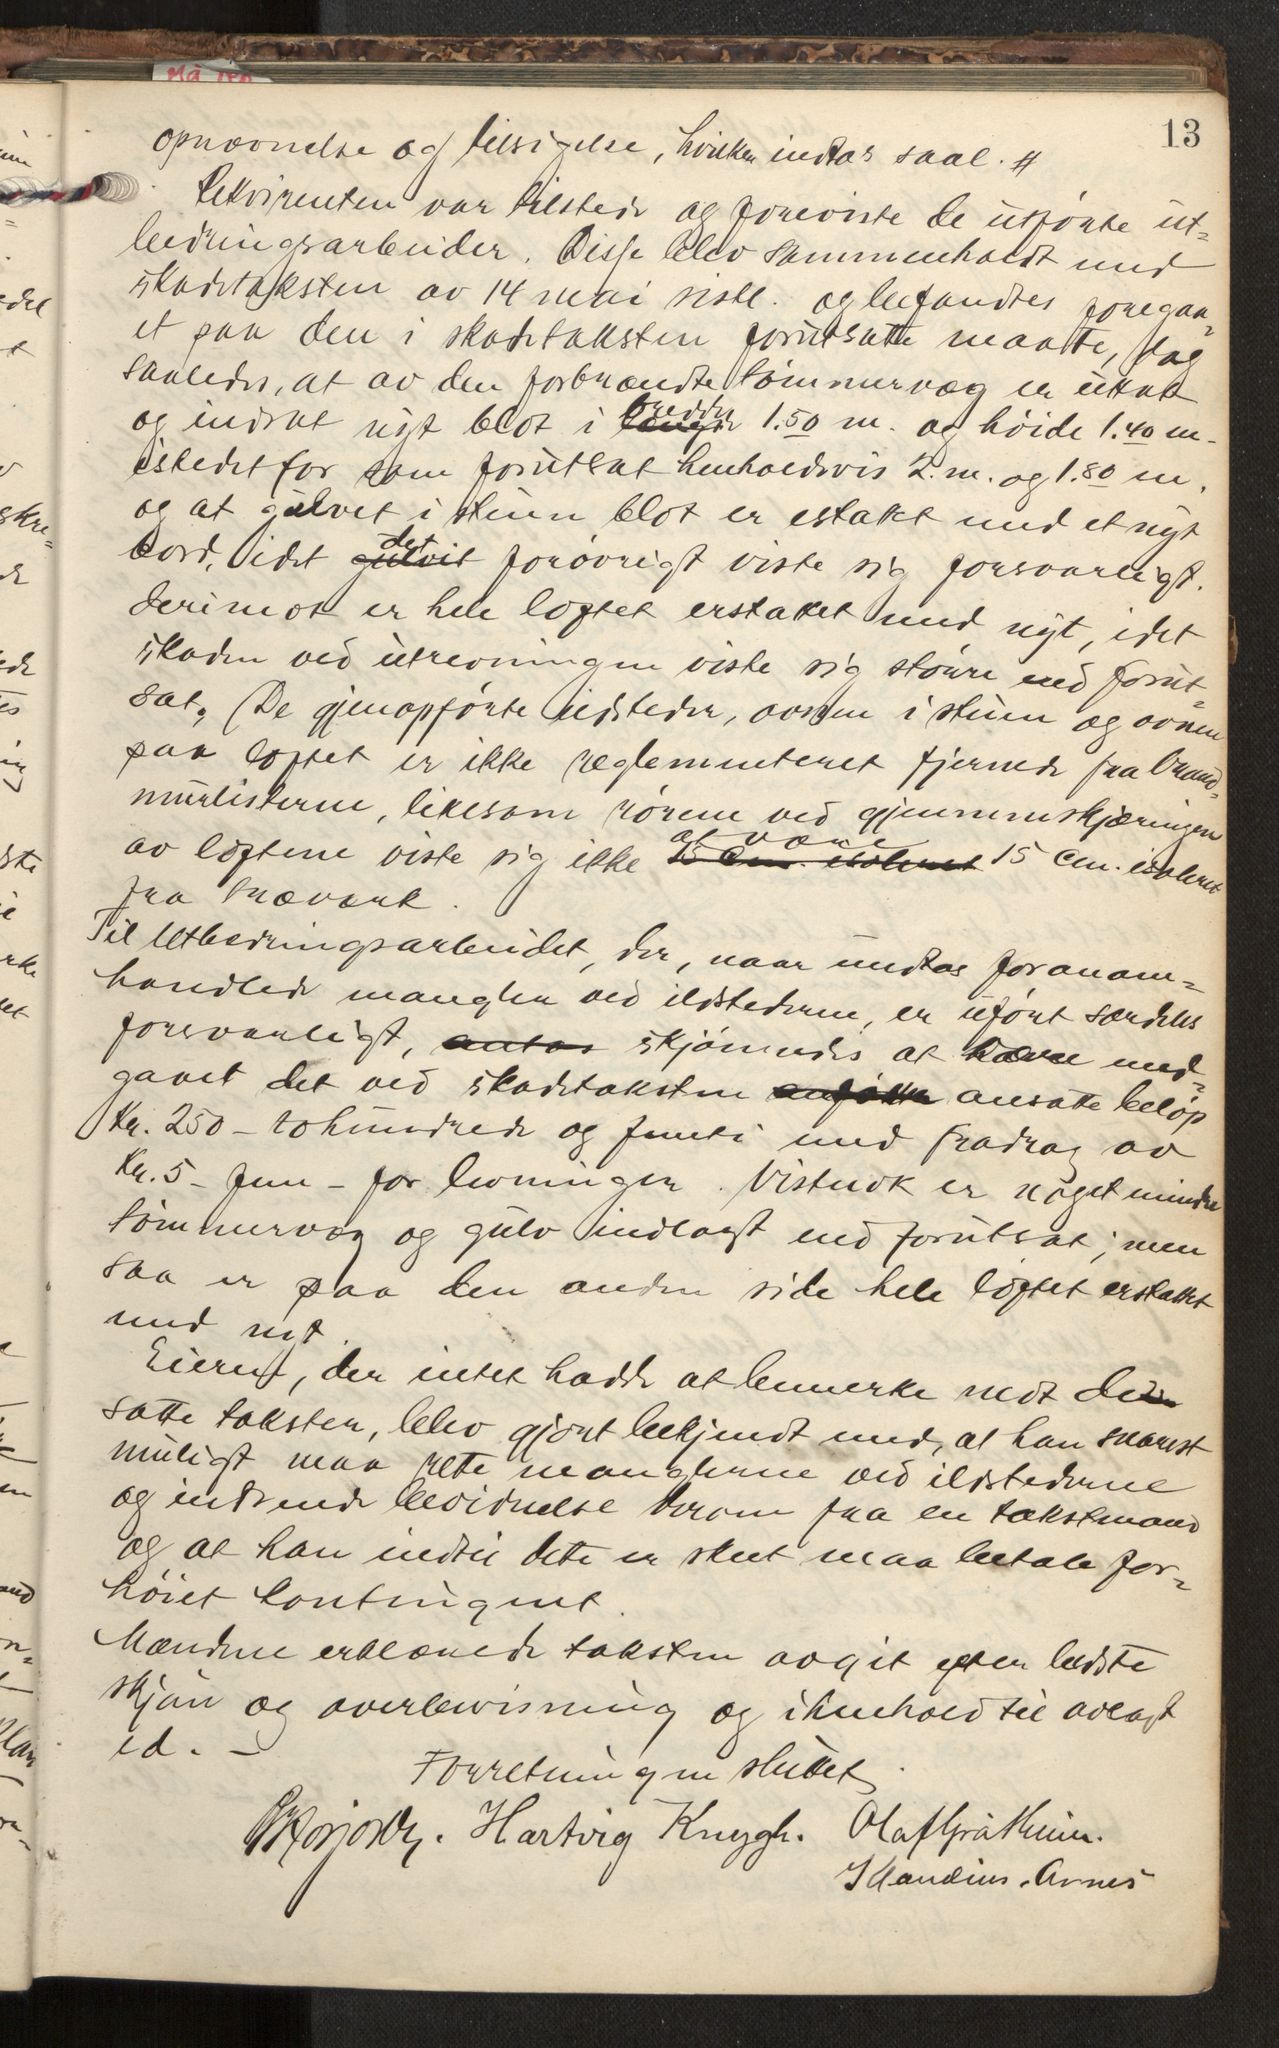 13
opnævnelse og tilsigelse, hvilken indtas saal. #
Rekvirenten var tilstede og foreviste de utførte ut-
bedringsarbeider. Disse blev sammenholdt med
skadetaksten av 14 mai sistl. og befandtes foregaa-
et paa den i skadetaksten forutsatte maate, dog
saaledes, at av den forbrændte tømmervæg er uttat
og indsat nyt blot i længde bredde 1.50 m. og høide 1.40 m.
istedetfor som forutsat henholdsvis 2. m. og 1.80 m.
og at gulvet i stuen blot er erstatt med et nyt
bord, idet gulvet det forøvrigt viste sig forsvarligt.
Derimot er hele loftet erstattet med nyt, idet
skaden ved utrevningen viste sig større end forut-
sat. De gjenopførte ildsteder, ovnen i stuen og ovnen
paa loftet er ikke reglementeret fjernede fra brand-
murlisterne, likesom rørene ved gjennemskjæringen
av loftene viste sig ikke 15 cm. isoleret at være 15 cm. isoleret
fra træverk.
Til Utbedringsarbeidet, der, naar undtas foranom-
handlede mangler ved ildstederne, er utført særdeles
forsvarligt, antas skjønnedes at være med-
gaaet det ved skadetaksten anførte ansatte beløp
Kr. 250 - tohundrede og femti med fradrag av
Kr. 5 - fem - for levninger. Vistnok er noget mindre
tømmervæg og gulv indlagt end forutsat; men
saa er paa den anden side hele loftet erstattet
med nyt.
Eieren, der intet hadde at bemerke mot den
satte takster, blev gjort bekjendt med, at han snarest
muligt maa rette manglerne ved ildstederne
og indsende bevidnelse derom fra en takstmand
og at han indtil dette er skeet maa betale for-
høiet kontingent.
Mændene erklærede taksten avgit efter bedste
skjøn og overbevisning og i henhold til avlagt
ed. -
Forretningen sluttet.
Hartvig Knygh. Olaf Gråthuin.
Klaudius. Arnes